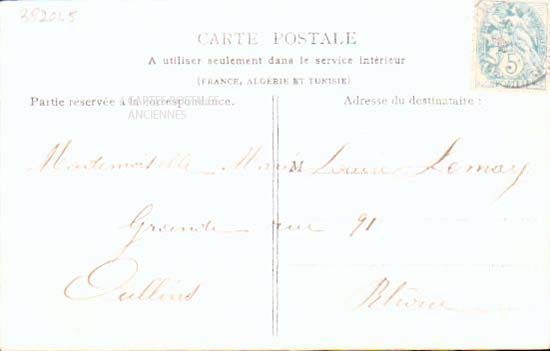 35206 5
CARTE POSTALE
A utiliser seulement dans le service intérieur
(FRANCE, ALGÉRIE ET TUNISIE)
Partie réservée à la correspondance.
Adresse du destinataire :
CARTES POSTALES
ANCIENNES
5c
Mademoiselle Marie M Louise Lemay
Grande rue 91
Oullins Rhône